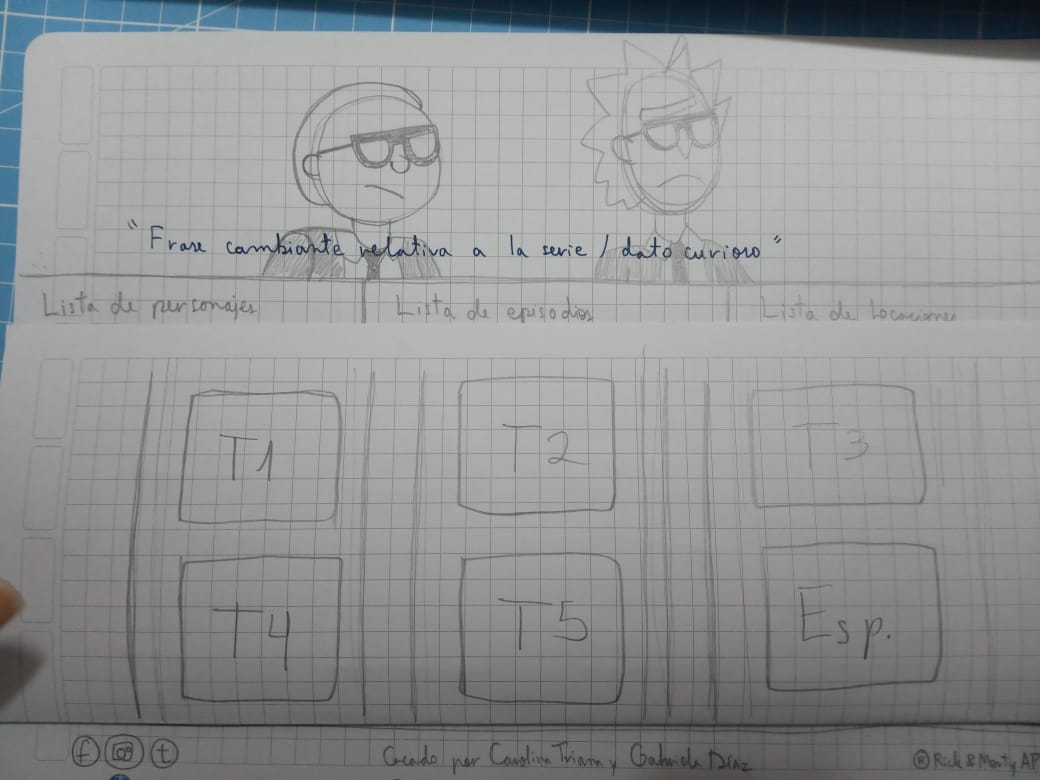 "Frase cambiante relativa a la serie / dato curioso"
Lista de personajes Lista de episodios Lista de locaciones
T1 T2 T3
T4 T5 Esp.
f t Creado por Carolina Triana y Gabriela Díaz ® Rick & Morty AP